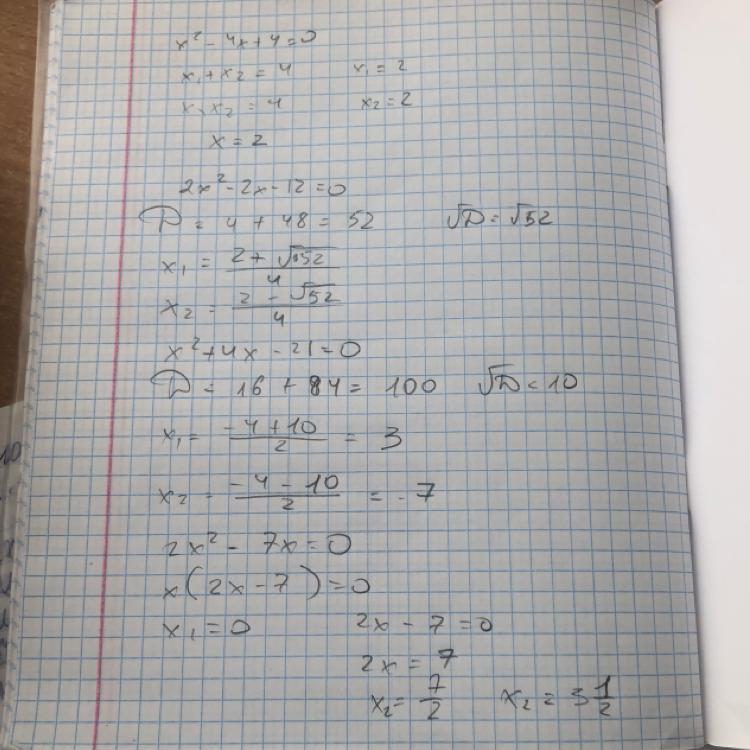 x² - 4x + 4 = 0
x₁ + x₂ = 4    x₁ = 2
x₁ x₂ = 4    x₂ = 2
x = 2
2x² - 2x - 12 = 0
D = 4 + 48 = 52    √D = √52
x₁ = (2 + √52)/4
x₂ = (2 - √52)/4
x² + 4x - 21 = 0
D = 16 + 84 = 100    √D = 10
x₁ = (-4 + 10)/2 = 3
x₂ = (-4 - 10)/2 = -7
2x² - 7x = 0
x(2x - 7) = 0
x₁ = 0    2x - 7 = 0
2x = 7
x₂ = 7/2    x₂ = 3 1/2